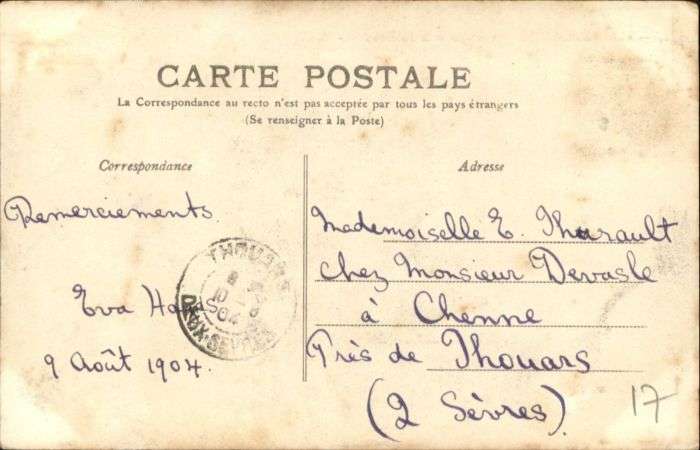 CARTE POSTALE
La Correspondance au recto n'est pas acceptée par tous les pays étrangers
(Se renseigner à la Poste)
Correspondance
Adresse
Remerciements.
Eva
9 Août 1904.
THOUARS
DEUX-SEVRES
Mademoiselle E. Tharault
chez Monsieur Devasle
à Chenne
Près de Thouars
(2 Sèvres).
17